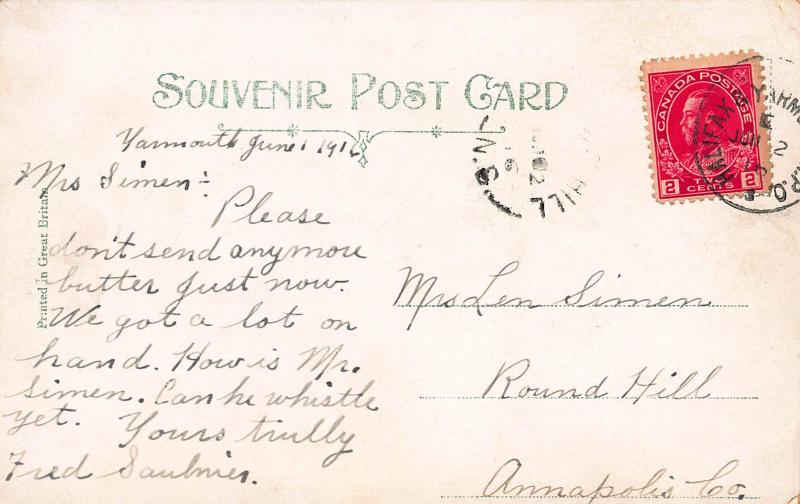 SOUVENIR POST CARD
Yarmouth June 1 1916
Mrs Simen:
Please
don't send anymore
butter just now.
We got a lot on
hand. How is Mr.
Simen. Can he whistle
yet. Yours trully
Fred Saulnier.
Printed in Great Britain
CANADA POSTAGE
2 TWO CENTS 2
HALIFAX & YARM
JUN 2
R.P.O.
HILL
N.S.
Mrs Len Simen
Round Hill
Annapolis Co.